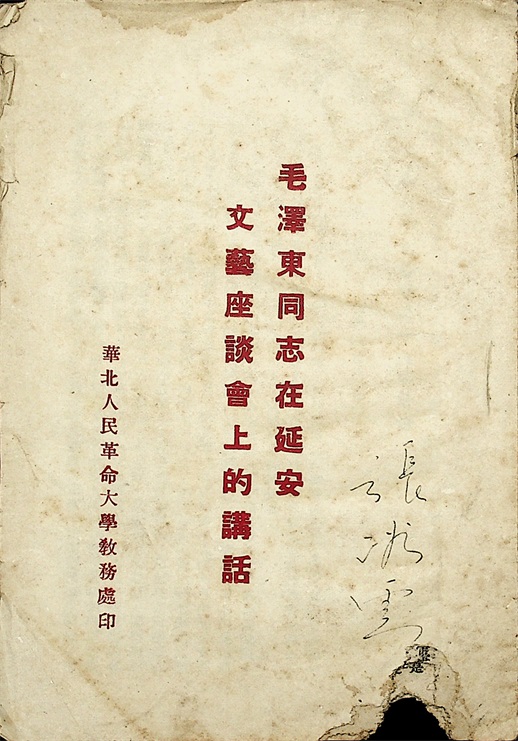 毛澤東同志在延安
文藝座談會上的講話
華北人民革命大學敎務處印